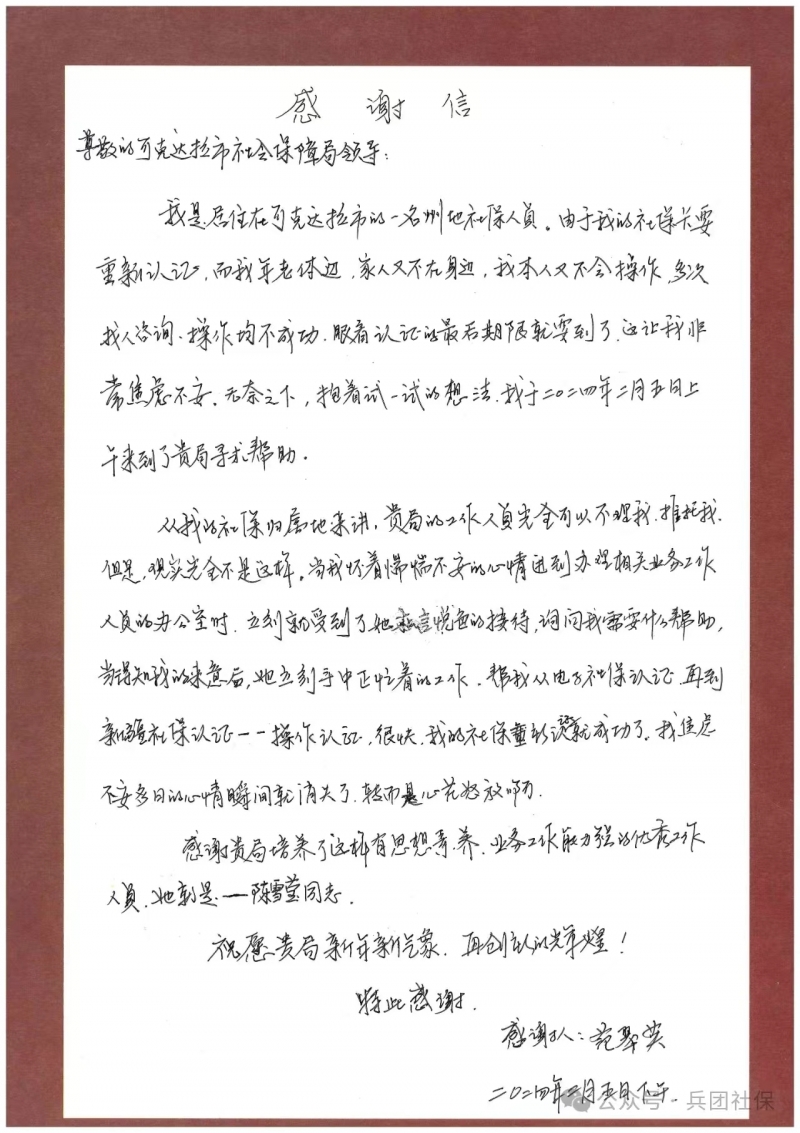 感谢信
尊敬的可克达拉市社会保障局领导：
我是居住在可克达拉市的一名州地社保人员。由于我的社保卡要
重新认证，而我年老体迈，家人又不在身边，我本人又不会操作，多次
找人咨询、操作均不成功、眼看认证的最后期限就要到了，这让我非
常焦虑不安。无奈之下，抱着试一试的想法，我于二〇二四年二月五日上
午来到了贵局寻求帮助。
从我的社保归属地来讲，贵局的工作人员完全可以不理我、推托我，
但是，现实完全不是这样。当我怀着惴惴不安的心情进到办理相关业务工作
人员的办公室时，立刻就受到了她言悦色的接待，询问我需要什么帮助，
当得知我的来意后，她立刻手中正忙着的工作、帮我从电子社保认证、再到
新疆社保认证一一操作认证，很快，我的社保重新认证就成功了。我焦虑
不安多日的心情瞬间就消失了，转而是心花怒放啊。
感谢贵局培养了这样有思想素养、业务工作能力强的优秀工作
人员，她就是——陈雪莹同志。
祝愿贵局新年新气象，再创新的辉煌！
特此感谢。
感谢人：范翠英
二〇二四年二月五日下午
公众号·兵团社保